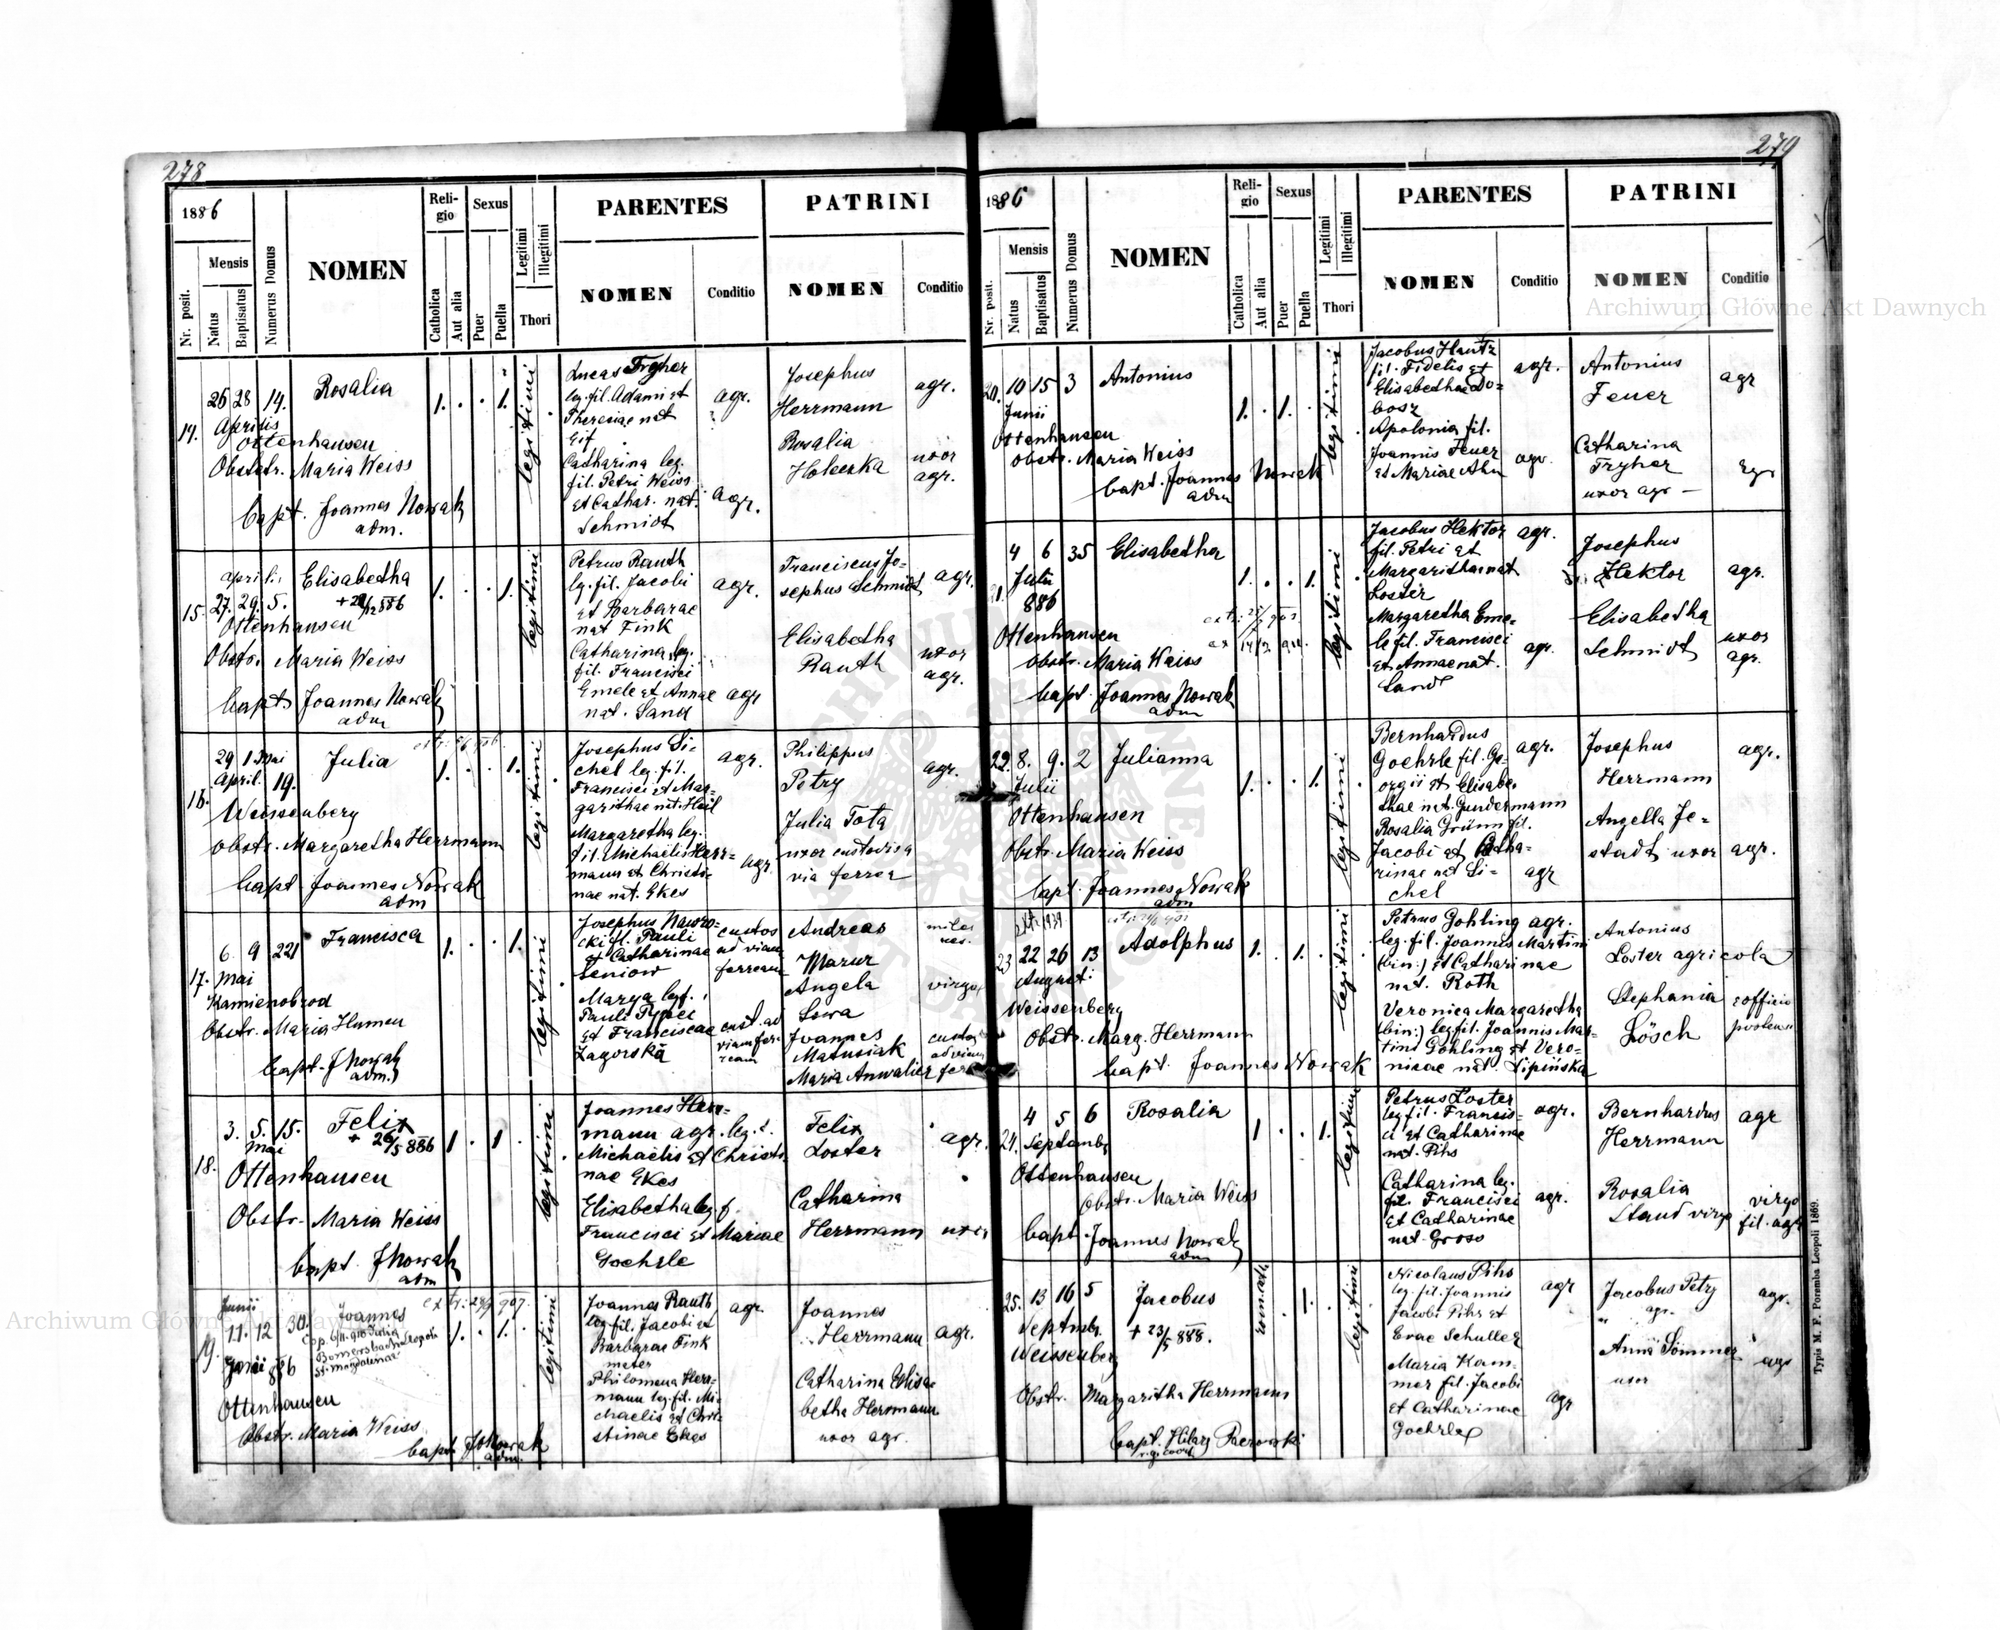 278
1886
Nr. posit.
Mensis
Natus
Baptisatus
Numerus Domus
NOMEN
Reli-
gio
Catholica
Aut alia
Sexus
Puer
Puella
Legitimi
Illegitimi
Thori
PARENTES
NOMEN
Conditio
PATRINI
NOMEN
Conditio
14. 26 28 14. Rosalia 1. . . 1. legitimi
Aprilis
Ottenhausen
Obstetr. Maria Weiss
bapt. Joannes Nowak
adm.
Lucas Tryher
leg. fil. Adami et
Theresiae nat
Eif
agr.
Catharina leg.
fil. Petri Weiss
et Cathar. nat.
Schmidt
agr.
Josephus
Herrmann
agr.
Rosalia
uxor
agr.
15. Aprilis
27. 29. 5. Elisabetha 1. . . 1. legitimi
Ottenhausen
Obstr. Maria Weiss
bapt. Joannes Nowak
adm
Petrus Rauth
leg. fil. Jacobi
et Barbarae
nat Fink
agr.
Catharina leg.
fil. Francisci
Emele et Annae
nat. Sand
agr
Franciscus Jo-
sephus Schmidt
agr.
Elisabetha
Rauth
uxor
agr.
16. 29 1 Mai Julia 1. . . 1. legitimi
April. 19.
Weissenberg
Obstr. Margaretha Herrmann
bapt. Joannes Nowak
adm
Josephus Si-
chel leg. fil.
Francisci et Mar-
garithae nat. Heil
agr.
Margaretha leg.
fil. Michaelis Herr-
mann et Christi-
nae nat. Ekes
agr.
Philippus
Petry
agr.
Julia Tota
uxor custodis a
via ferrea
17. 6 9 221 Francisca 1. . . 1. legitimi
Mai
Kamienobrod
Obstr. Maria Humen
bapt. J Nowak
adm.
Josephus Nawro-
cki fil. Pauli
et Catharinae
Seniow
custos
ad viam
ferream
Marya leg f.
Pauli Pypeć
et Franciscae
Zagorska
cust. ad
viam fer-
ream
Andreas
Mazur
miles
Angela
Sowa
virgo
Joannes
Matusiak
custos
ad viam
Maria Anwalier
18. 3. 5. 15. Felix 1 . 1 . legitimi
Mai
+ 26/5 886
Ottenhausen
Obstr. Maria Weiss
bapt. J Nowak
adm
Joannes Herr-
mann agr. leg. f.
Michaelis et Christi-
nae Ekes
Elisabetha leg. f.
Francisci et Mariae
Goehrle
Felix
Loster
agr.
Catharina
Herrmann
uxor
19. Junii
11. 12 30. Joannes 1. . 1. . legitimi
extr: 28/9 907.
Junii 886
Ottenhausen
Obstr. Maria Weiss
bapt. J Nowak
adm.
Joannes Rauth
leg. fil. Jacobi et
Barbarae Fink
agr.
mater
Philomena Herr-
mann leg. fil. Mi-
chaelis et Chri-
stinae Ekes
Joannes
Herrmann
agr.
Catharina Elisa-
betha Herrmann
uxor agr.
279
1886
Nr. posit.
Mensis
Natus
Baptisatus
Numerus Domus
NOMEN
Reli-
gio
Catholica
Aut alia
Sexus
Puer
Puella
Legitimi
Illegitimi
Thori
PARENTES
NOMEN
Conditio
PATRINI
NOMEN
Conditio
20. 10 15 3 Antonius 1. . 1. . legitimi
Junii
Ottenhausen
Obstr. Maria Weiss
bapt. Joannes Nowak
adm
Jacobus Hautz
fil. Fidelis et
Elisabethae Do-
bosz
agr.
Apolonia fil.
Joannis Feuer
et Mariae
agr.
Antonius
Feuer
agr
Catharina
Tryher
uxor agr
21. 4 6 35 Elisabetha 1. . . 1. legitimi
Julii
886
Ottenhausen
Obstr. Maria Weiss
bapt. Joannes Nowak
adm
Jacobus Hektor
fil. Petri et
Margarithae nat
Loster
agr.
Margaretha Eme-
le fil. Francisci
et Annae nat.
Sand
agr.
Josephus
Hektor
agr.
Elisabetha
Schmidt
uxor
agr.
22. 8. 9. 2 Julianna 1. . . 1. legitimi
Julii
Ottenhausen
Obstr. Maria Weiss
bapt. Joannes Nowak
adm
Bernhardus
Goehrle fil. Ge-
orgii et Elisabe-
thae nat. Gundermann
agr.
Rosalia Grünn fil.
Jacobi et Catha-
rinae nat Si-
chel
agr
Josephus
Herrmann
agr.
Angella Je-
stadt uxor agr.
23 22 26 13 Adolphus 1. . 1. . legitimi
Augusti
Weissenberg
Obstr. Marg. Herrmann
bapt. Joannes Nowak
Petrus Gohling agr.
leg. fil. Joannis Martini
(bin:) et Catharinae
nat. Roth
Veronica Margaretha
(bin:) leg. fil. Joannis Mar-
tini Gohling et Vero-
nicae nat Lipińska
Antonius
Loster agricola
Stephania
Lösch
24. 4 5 6 Rosalia 1 . . 1. legitimi
Septembr
Ottenhausen
Obstr. Maria Weiss
bapt. Joannes Nowak
adm
Petrus Loster
leg fil. Francis-
ci et Catharinae
nat. Pihs
agr.
Catharina leg.
fil. Francisci
et Catharinae
nat. Gross
agr.
Bernhardus
Herrmann
agr
Rosalia
Staud virgo
virgo
fil. agr
25. 13 16 5 Jacobus rom. cath . 1. . legitimi
Septmbr.
+ 23/5 888.
Weissenberg
Obstr. Margaritha Herrmann
bapt. Hilary
Nicolaus Pihs
leg. fil. Joannis
Jacobi Pihs et
Evae Schuller
agr
Maria Kam-
mer fil. Jacobi
et Catharinae
Goehrle
agr
Jacobus Petry
agr.
agr.
Anna Sömmer
uxor
agr
Typis M. F. Poremba Leopoli 1869.
Archiwum Główne Akt Dawnych
Archiwum Główne Akt Dawnych